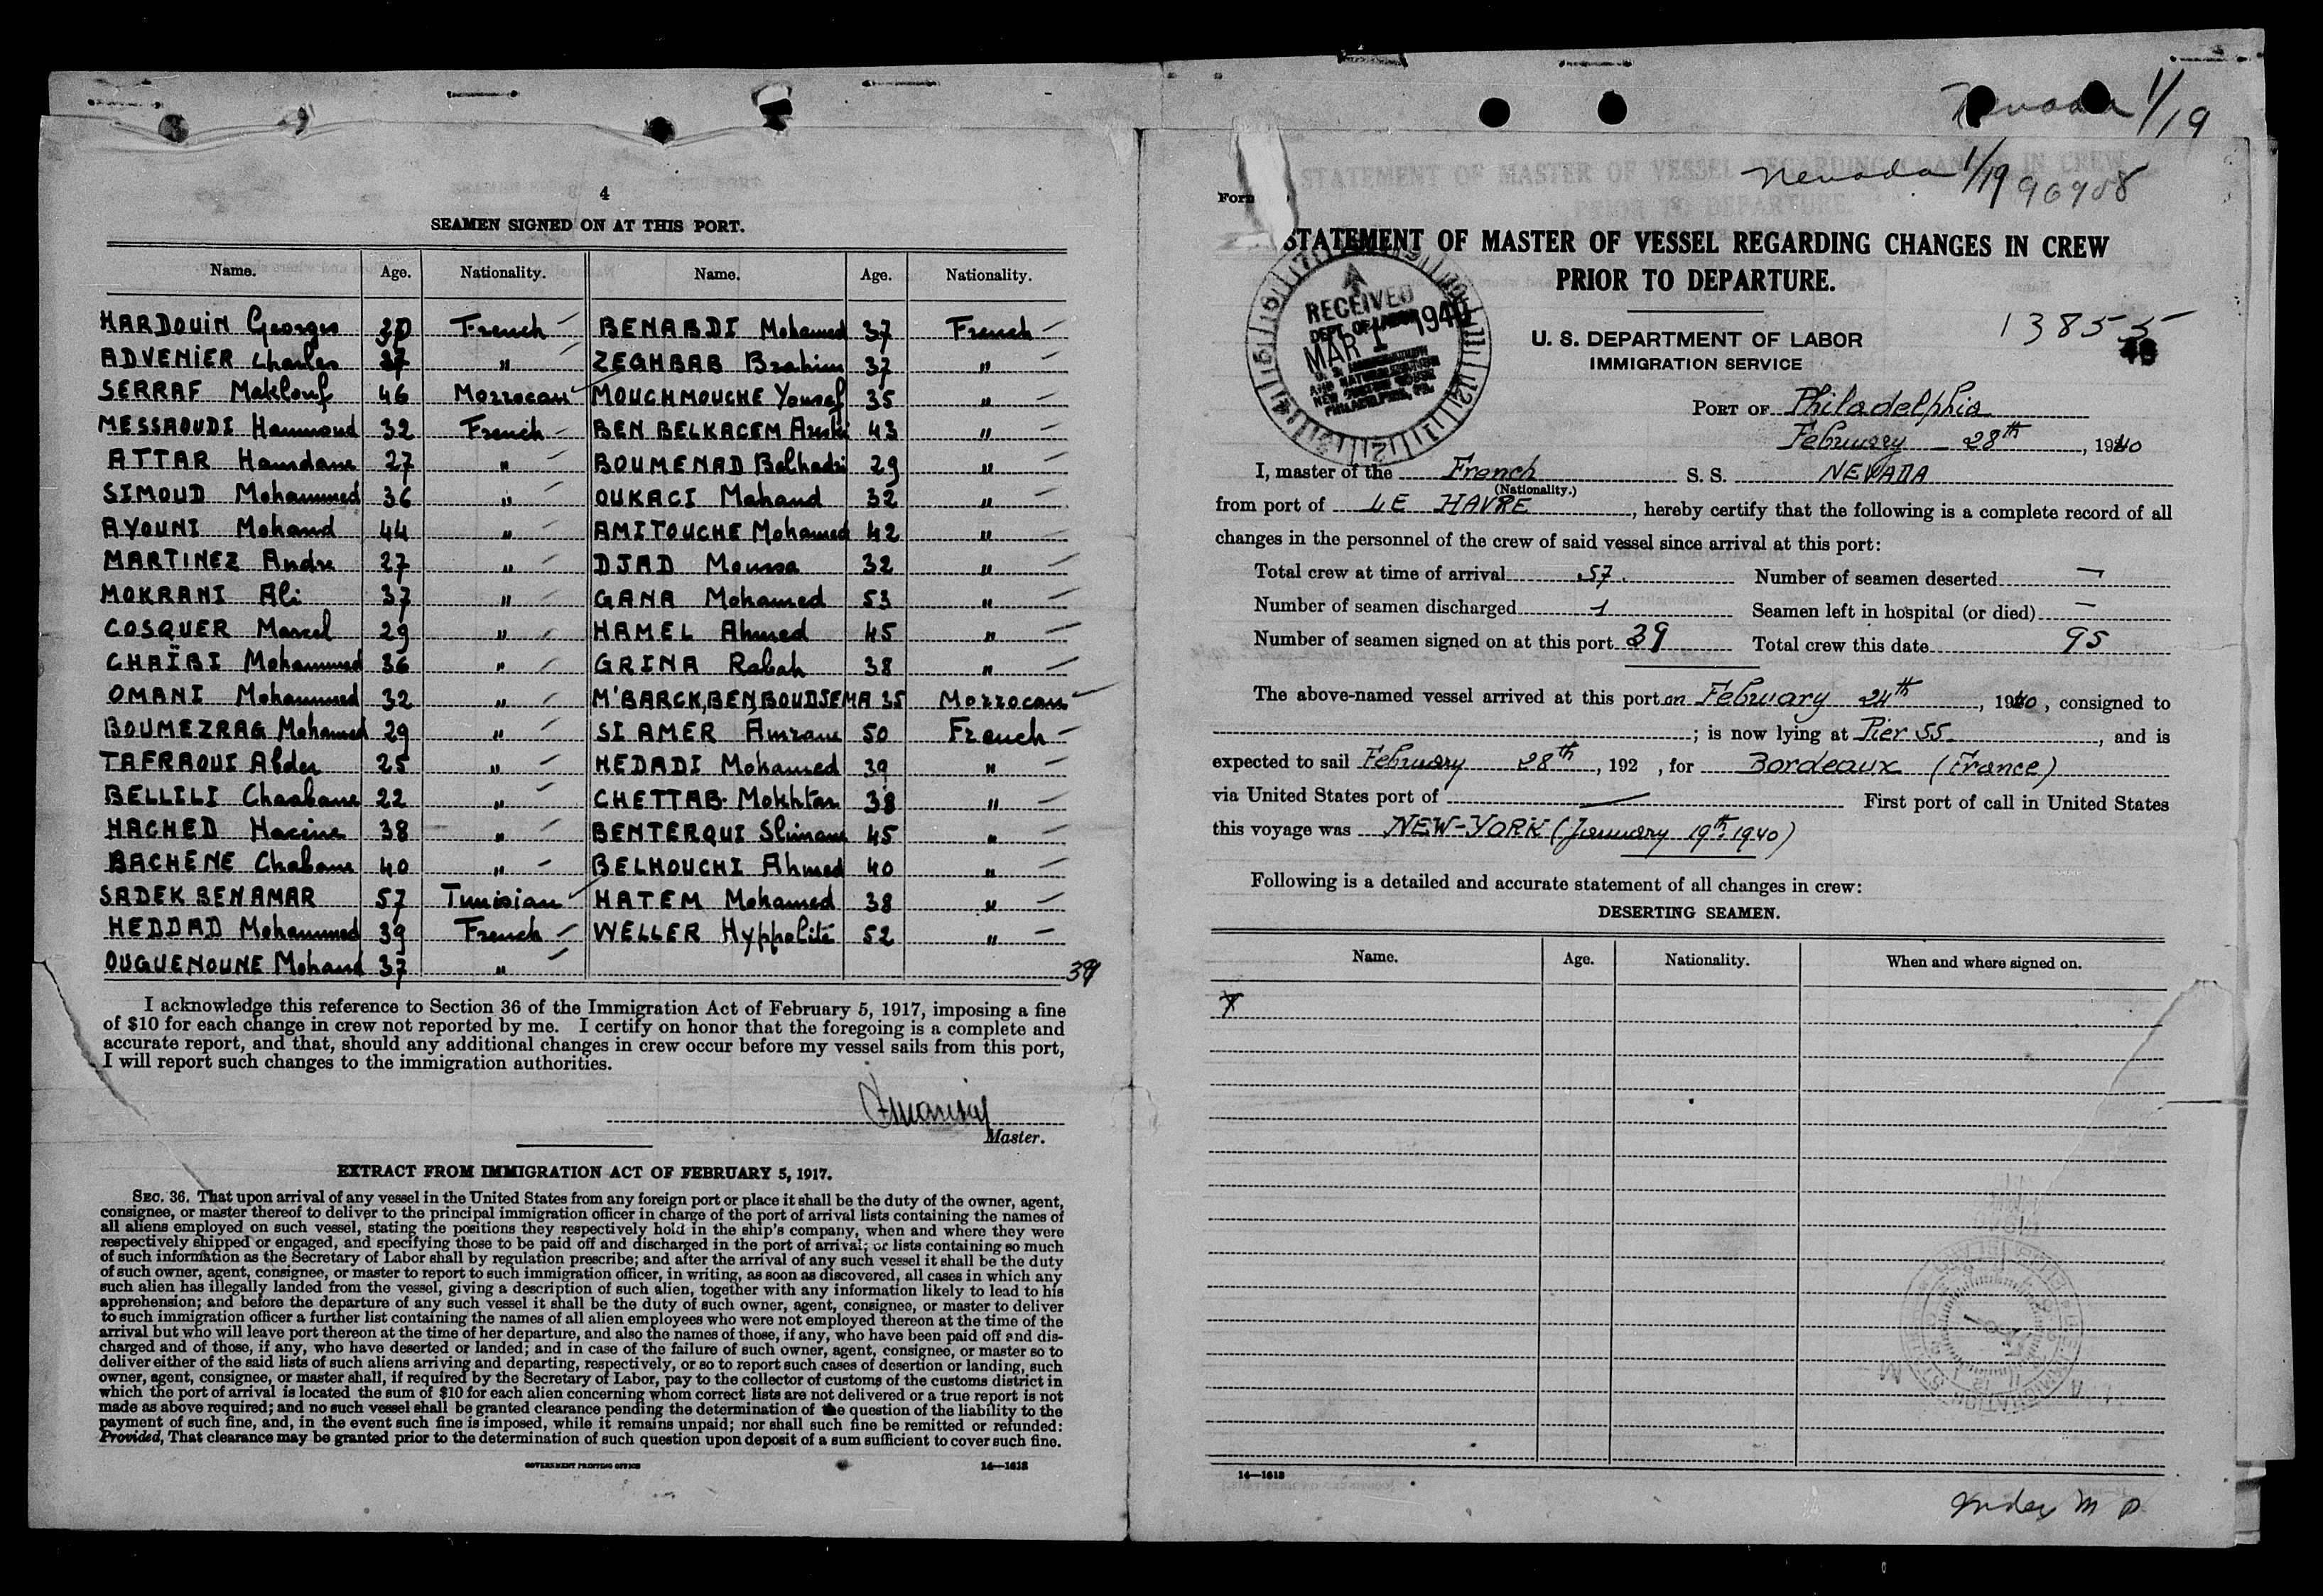 4
SEAMEN SIGNED ON AT THIS PORT.
Name. Age. Nationality. Name. Age. Nationality.
HARDOUIN Georges French BENABDI Mohamed 37 French
ADVENIER Charles 37 " ZEGHBAB Brahim 37 "
SERRAF Maklouf 46 Morrocan MOUCHMOUCHE Youssef 35 "
MESSAOUDI Hammoud 32 French BEN BELKACEM Areski 43 "
ATTAR Hamdane 27 " BOUMENAD Belhadi 29 "
SIMOUD Mohammed 36 " OUKACI Mohand 32 "
AYOUNI Mohand 44 " AMITOUCHE Mohamed 42 "
MARTINEZ Andre 27 " DJAD Moussa 32 "
MOKRANI Ali 37 " GANA Mohamed 53 "
COSQUER Marcel 29 " HAMEL Ahmed 45 "
CHAÏBI Mohammed 36 " GRINA Rabah 38 "
OMANI Mohammed 32 " M'BARCK,BEN,BOUDJEMA 35 Morrocan
BOUMEZRAG Mohamed 29 " SI AMER Amrane 50 French
TAFRAOUI Abder 25 " HEDADI Mohamed 39 "
BELLILI Chaabane 22 " CHETTAB Mokhtar 38 "
HACHED Hacine 38 " BENTERQUI Slimane 45 "
BACHENE Chabane 40 " BELHOUCHI Ahmed 40 "
SADEK BENAMAR 57 Tunisian HATEM Mohamed 38 "
HEDDAD Mohammed 39 French WELLER Hyppolite 52 "
OUGUENOUNE Mohand 37 "
39
I acknowledge this reference to Section 36 of the Immigration Act of February 5, 1917, imposing a fine
of $10 for each change in crew not reported by me. I certify on honor that the foregoing is a complete and
accurate report, and that, should any additional changes in crew occur before my vessel sails from this port,
I will report such changes to the immigration authorities.
Master.
EXTRACT FROM IMMIGRATION ACT OF FEBRUARY 5, 1917.
SEC. 36. That upon arrival of any vessel in the United States from any foreign port or place it shall be the duty of the owner, agent,
consignee, or master thereof to deliver to the principal immigration officer in charge of the port of arrival lists containing the names of
all aliens employed on such vessel, stating the positions they respectively hold in the ship's company, when and where they were
respectively shipped or engaged, and specifying those to be paid off and discharged in the port of arrival; or lists containing so much
of such information as the Secretary of Labor shall by regulation prescribe; and after the arrival of any such vessel it shall be the duty
of such owner, agent, consignee, or master to report to such immigration officer, in writing, as soon as discovered, all cases in which any
such alien has illegally landed from the vessel, giving a description of such alien, together with any information likely to lead to his
apprehension; and before the departure of any such vessel it shall be the duty of such owner, agent, consignee, or master to deliver
to such immigration officer a further list containing the names of all alien employees who were not employed thereon at the time of the
arrival but who will leave port thereon at the time of her departure, and also the names of those, if any, who have been paid off and dis-
charged and of those, if any, who have deserted or landed; and in case of the failure of such owner, agent, consignee, or master so to
deliver either of the said lists of such aliens arriving and departing, respectively, or so to report such cases of desertion or landing, such
owner, agent, consignee, or master shall, if required by the Secretary of Labor, pay to the collector of customs of the customs district in
which the port of arrival is located the sum of $10 for each alien concerning whom correct lists are not delivered or a true report is not
made as above required; and no such vessel shall be granted clearance pending the determination of the question of the liability to the
payment of such fine, and, in the event such fine is imposed, while it remains unpaid; nor shall such fine be remitted or refunded:
Provided, That clearance may be granted prior to the determination of such question upon deposit of a sum sufficient to cover such fine.
GOVERNMENT PRINTING OFFICE 14—1618
Nevada 1/19
Nevada 1/19 96908
Form
STATEMENT OF MASTER OF VESSEL REGARDING CHANGES IN CREW
PRIOR TO DEPARTURE.
RECEIVED
DEPT. OF LABOR
MAR 1 1940
U. S. IMMIGRATION
AND NATURALIZATION
NEW CUSTOM HOUSE
PHILADELPHIA, PA.
U. S. DEPARTMENT OF LABOR
IMMIGRATION SERVICE
13855
PORT OF Philadelphia
February 28th, 1940
I, master of the French S. S. NEVADA
(Nationality.)
from port of LE HAVRE, hereby certify that the following is a complete record of all
changes in the personnel of the crew of said vessel since arrival at this port:
Total crew at time of arrival 57 Number of seamen deserted —
Number of seamen discharged 1 Seamen left in hospital (or died) —
Number of seamen signed on at this port 39 Total crew this date 95
The above-named vessel arrived at this port on February 24th, 1940, consigned to
; is now lying at Pier 55, and is
expected to sail February 28th, 192 , for Bordeaux (France)
via United States port of — First port of call in United States
this voyage was NEW-YORK (January 19th 1940)
Following is a detailed and accurate statement of all changes in crew:
DESERTING SEAMEN.
Name. Age. Nationality. When and where signed on.
14—1618
Index M P